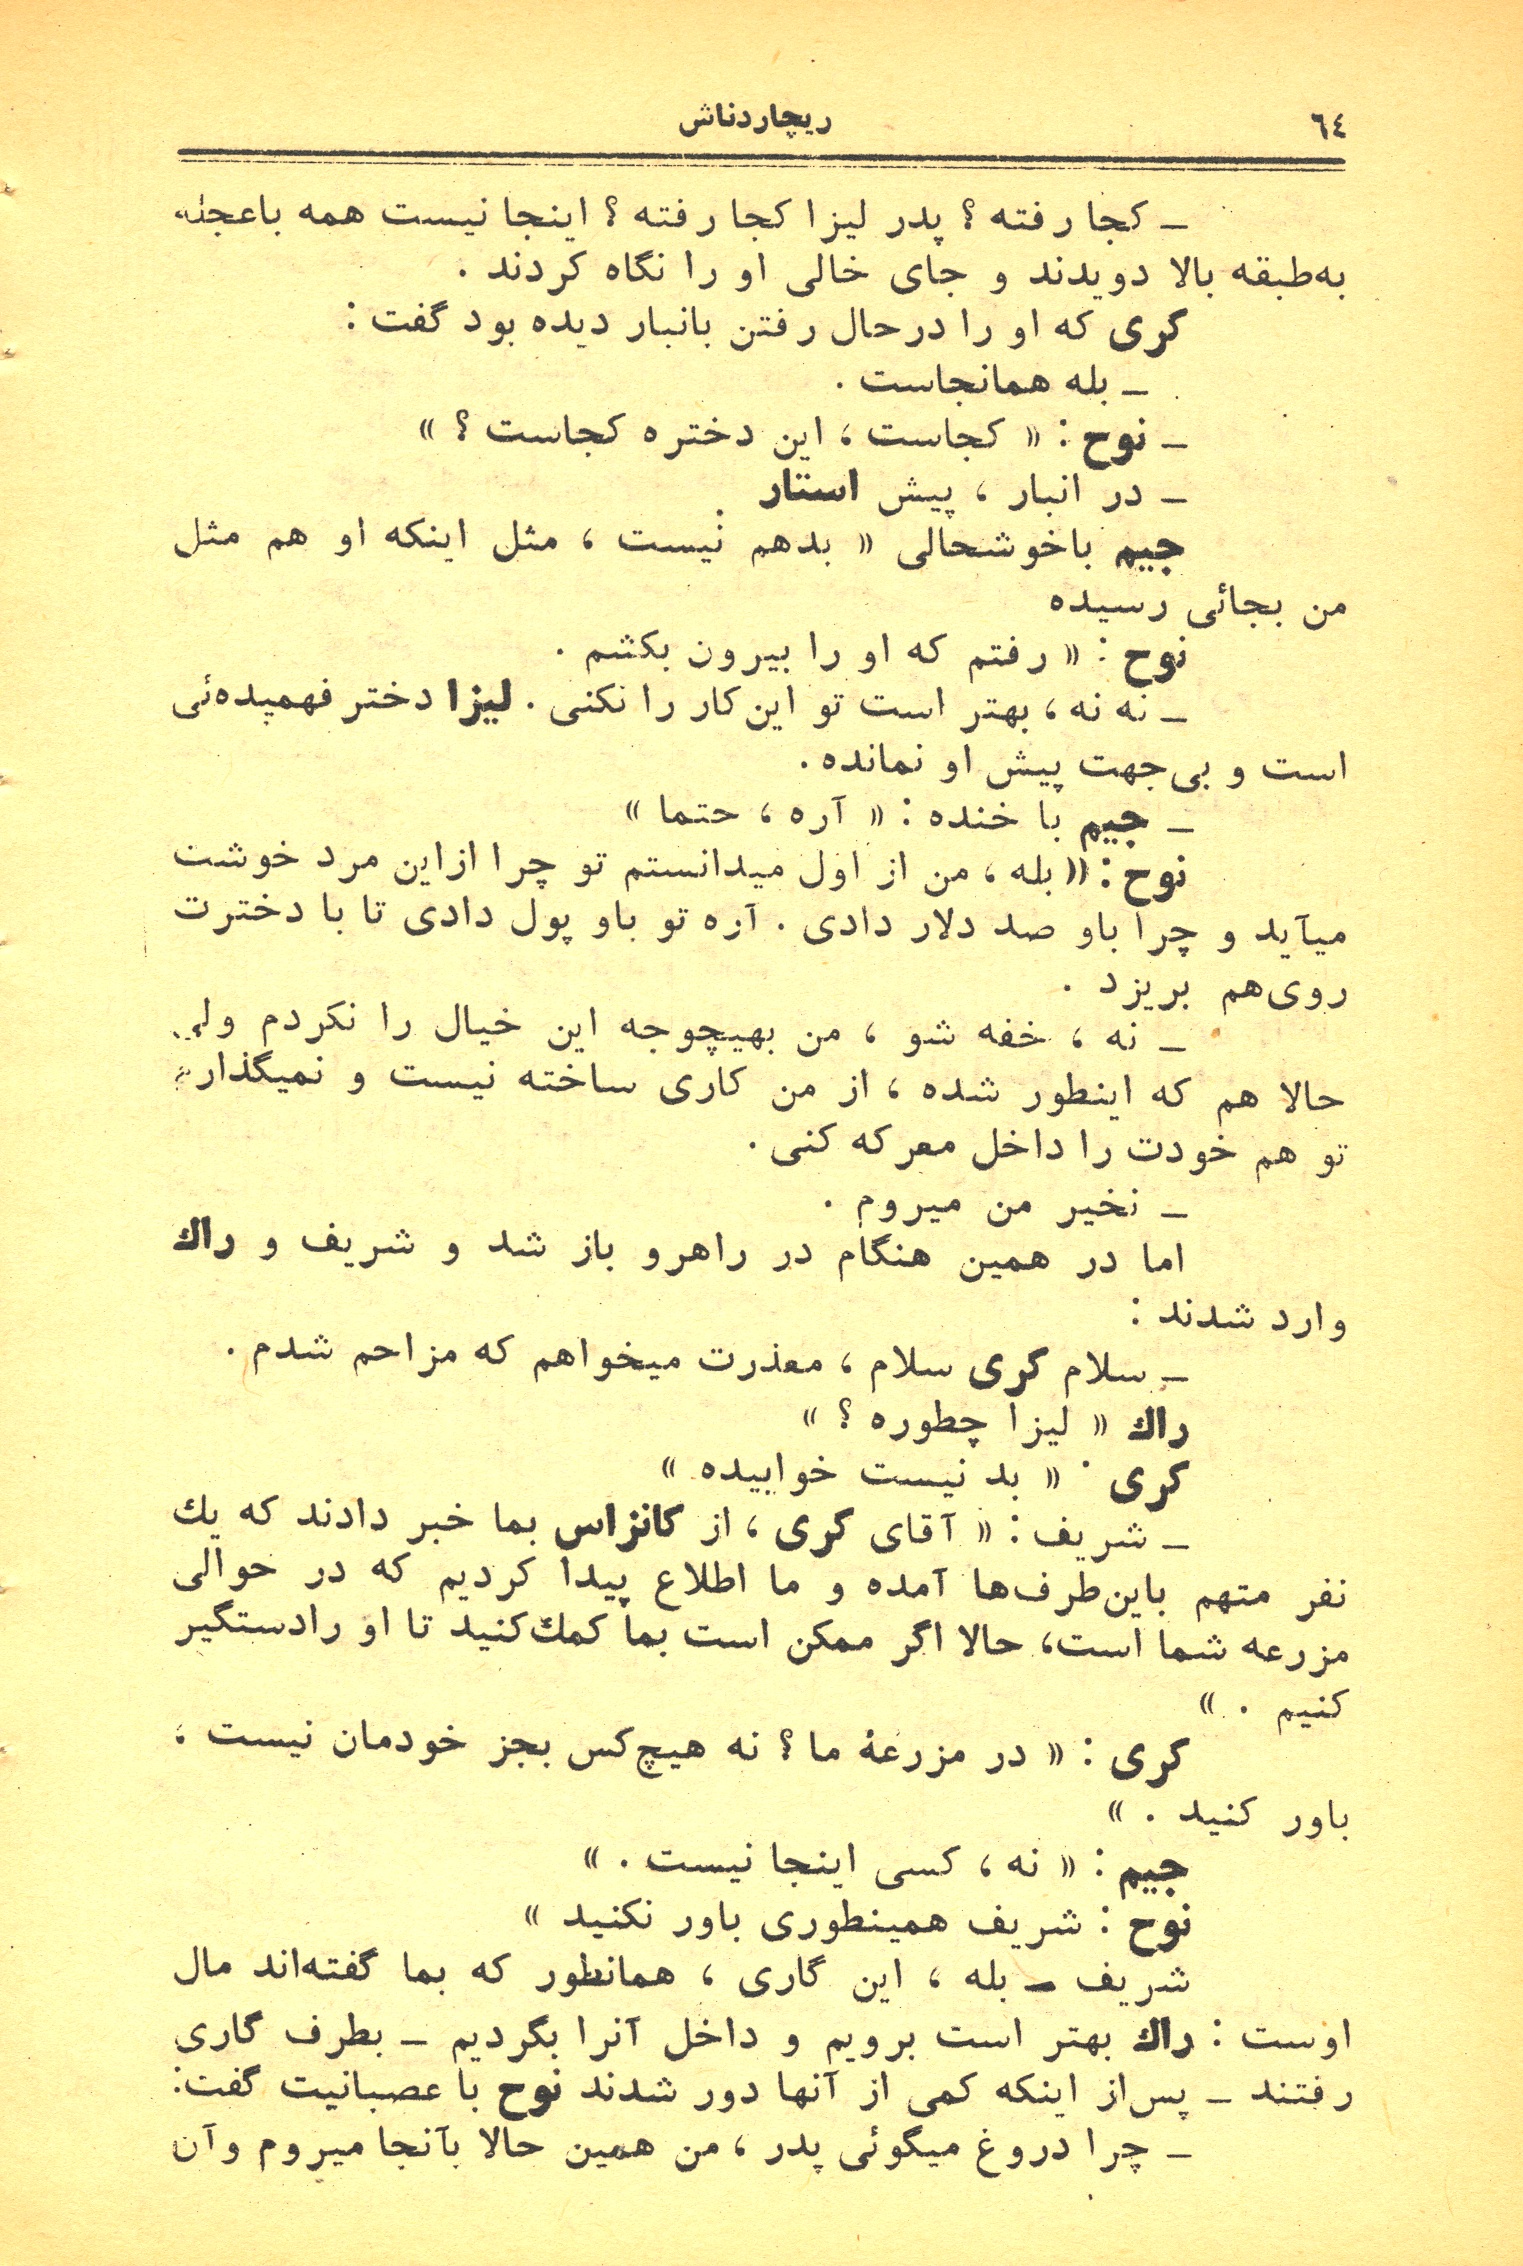 ٦٤
ریچاردناش
ـ کجا رفته ؟ پدر لیزا کجا رفته ؟ اینجا نیست همه باعجله
به‌طبقه بالا دویدند و جای خالی او را نگاه کردند .
کری که او را درحال رفتن بانبار دیده بود گفت :
ـ بله همانجاست .
ـ نوح : « کجاست ، این دختره کجاست ؟ »
ـ در انبار ، پیش استار .
جیم باخوشحالی « بدهم نیست ، مثل اینکه او هم مثل
من بجائی رسیده
نوح : « رفتم که او را بیرون بکشم .
ـ نه نه ، بهتر است تو این‌کار را نکنی . لیزا دختر فهمیده‌ئی
است و بی‌جهت پیش او نمانده .
ـ جیم با خنده : « آره ، حتما »
نوح : « بله ، من از اول میدانستم تو چرا ازاین مرد خوشت
میآید و چرا باو صد دلار دادی . آره تو باو پول دادی تا با دخترت
روی‌هم بریزد .
ـ نه ، خفه شو ، من بهیچوجه این خیال را نکردم ولی
حالا هم که اینطور شده ، از من کاری ساخته نیست و نمیگذارم
تو هم خودت را داخل معرکه کنی .
ـ نخیر من میروم .
اما در همین هنگام در راهرو باز شد و شریف و راك
وارد شدند :
ـ سلام کری سلام ، معذرت میخواهم که مزاحم شدم .
راك « لیزا چطوره ؟ »
کری . « بد نیست خوابیده »
ـ شریف : « آقای کری ، از کانزاس بما خبر دادند که یك
نفر متهم باین‌طرف‌ها آمده و ما اطلاع پیدا کردیم که در حوالی
مزرعه شما است، حالا اگر ممکن است بما کمك‌کنید تا او رادستگیر
کنیم . »
کری : « در مزرعهٔ ما ؟ نه هیچ‌کس بجز خودمان نیست ،
باور کنید . »
جیم : « نه ، کسی اینجا نیست . »
نوح : شریف همینطوری باور نکنید »
شریف ـ بله ، این گاری ، همانطور که بما گفته‌اند مال
اوست : راك بهتر است برویم و داخل آنرا بگردیم ـ بطرف گاری
رفتند ـ پس‌از اینکه کمی از آنها دور شدند نوح با عصبانیت گفت:
ـ چرا دروغ میگوئی پدر ، من همین حالا بآنجا میروم وآن